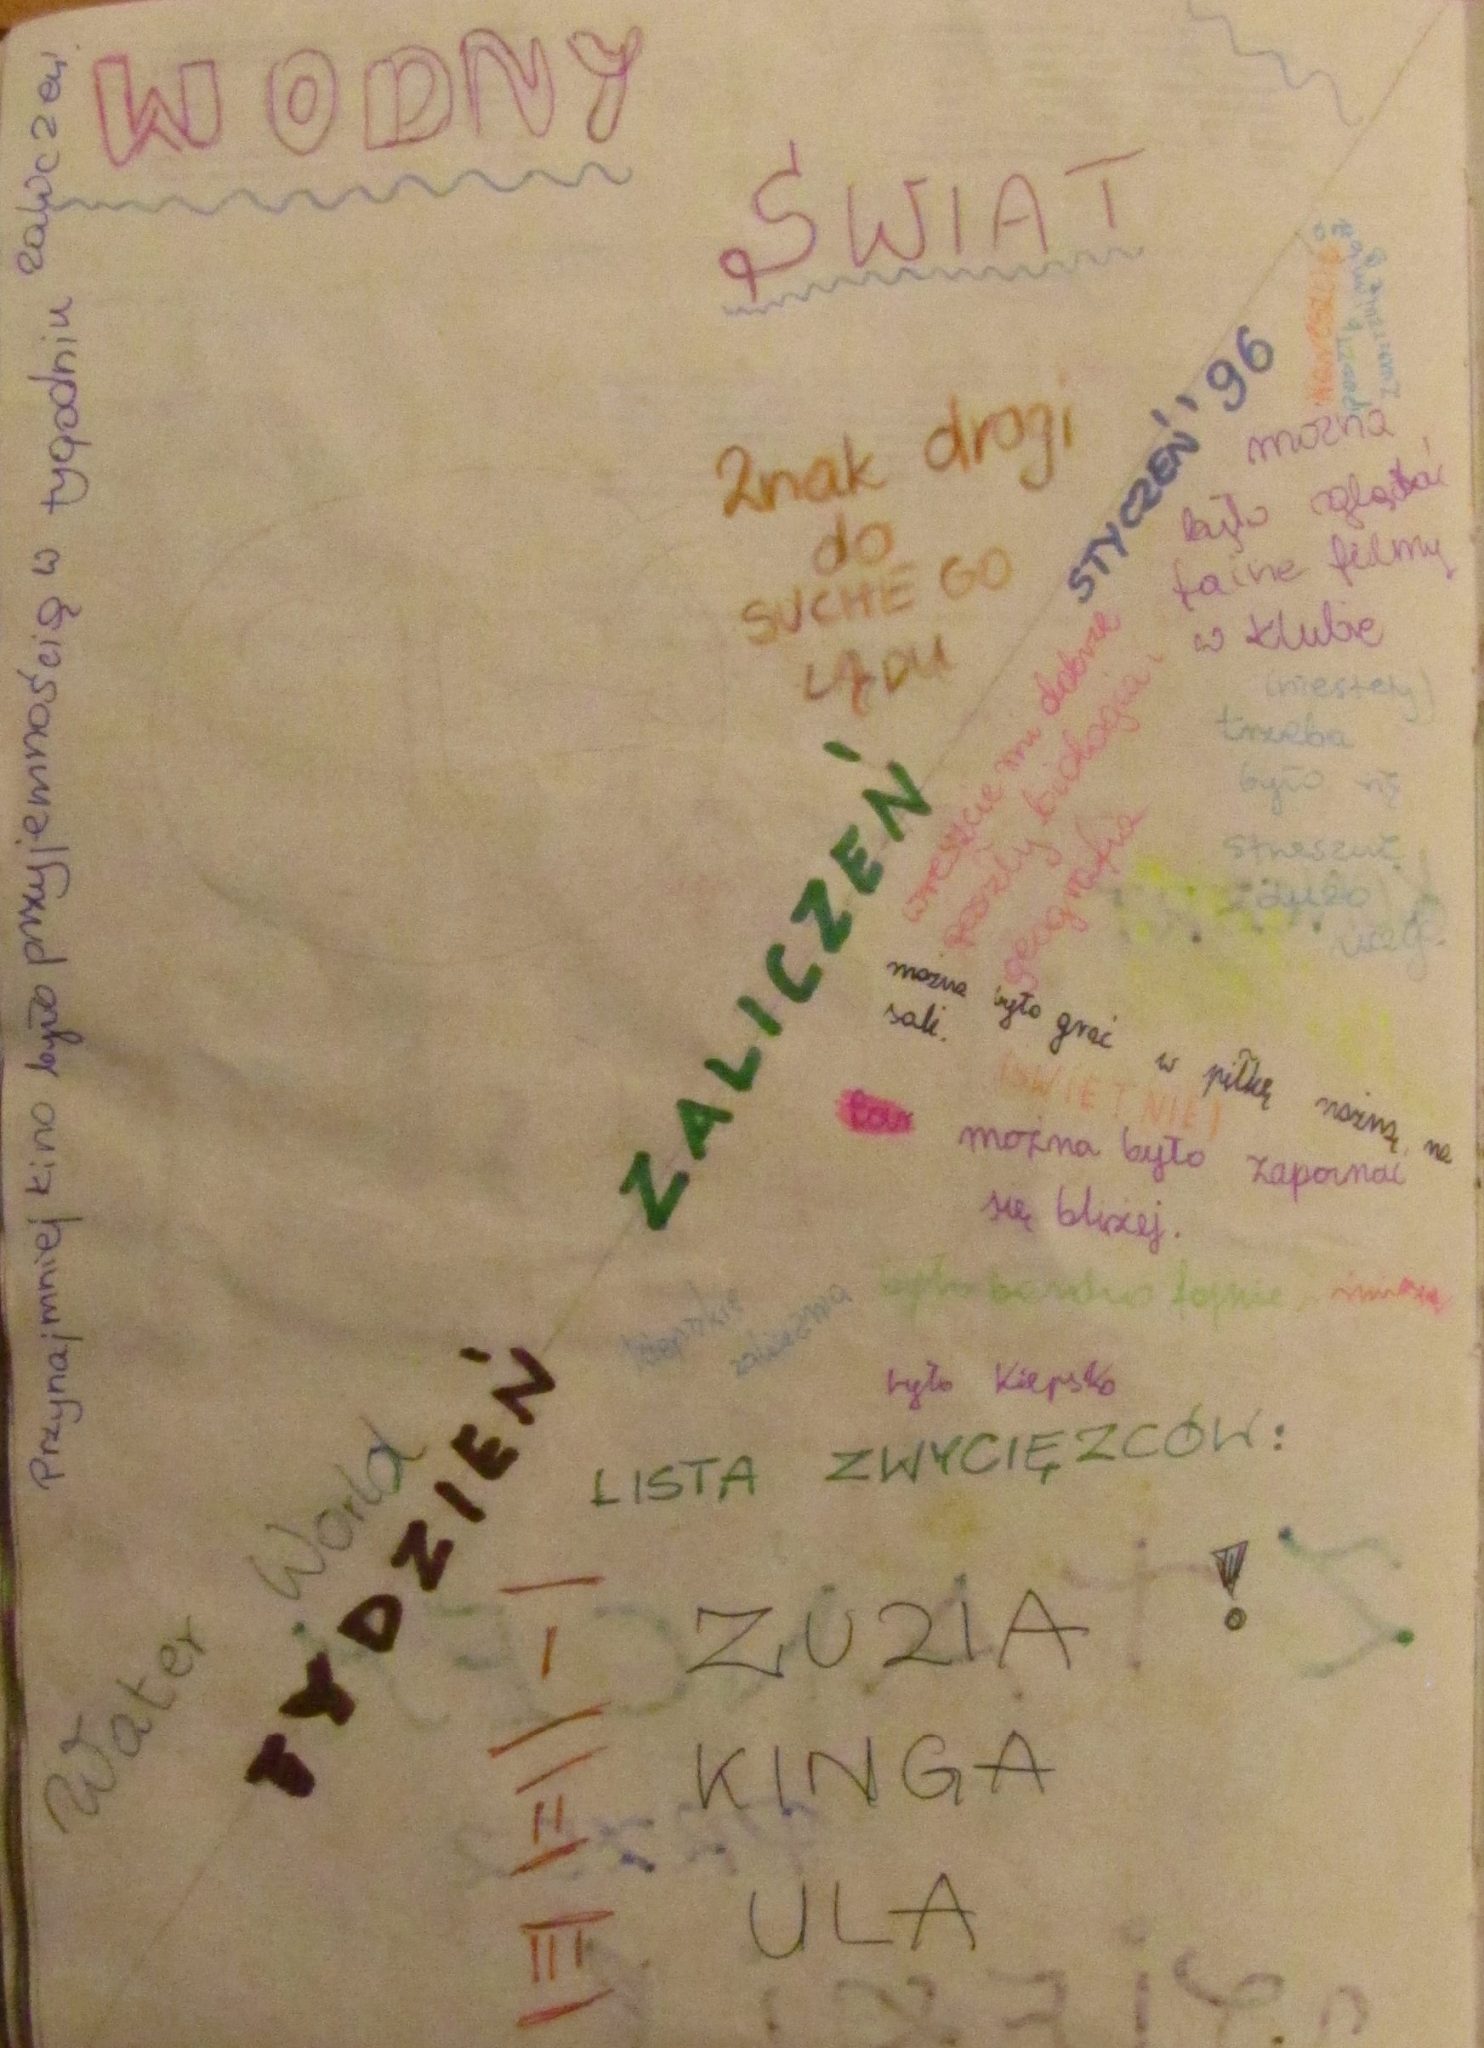 WODNY
ŚWIAT
Przynajmniej kino było przyjemnością w tygodniu zaliczeń.
Znak drogi
do
SUCHEGO
LĄDU
TYDZIEŃ ZALICZEŃ STYCZEŃ '96
można
było oglądać
fajne filmy
w klubie
(niestety)
trzeba
było się
wreszcie mi dobrze
poszły biologia i
geografia
można było grać w piłkę nożną na
sali.
ŚWIETNIE!
można było zapoznać
się bliżej.
było bardzo fajnie
było kiepsko
Water World
LISTA ZWYCIĘZCÓW:
I ZUZIA !
II KINGA
III ULA